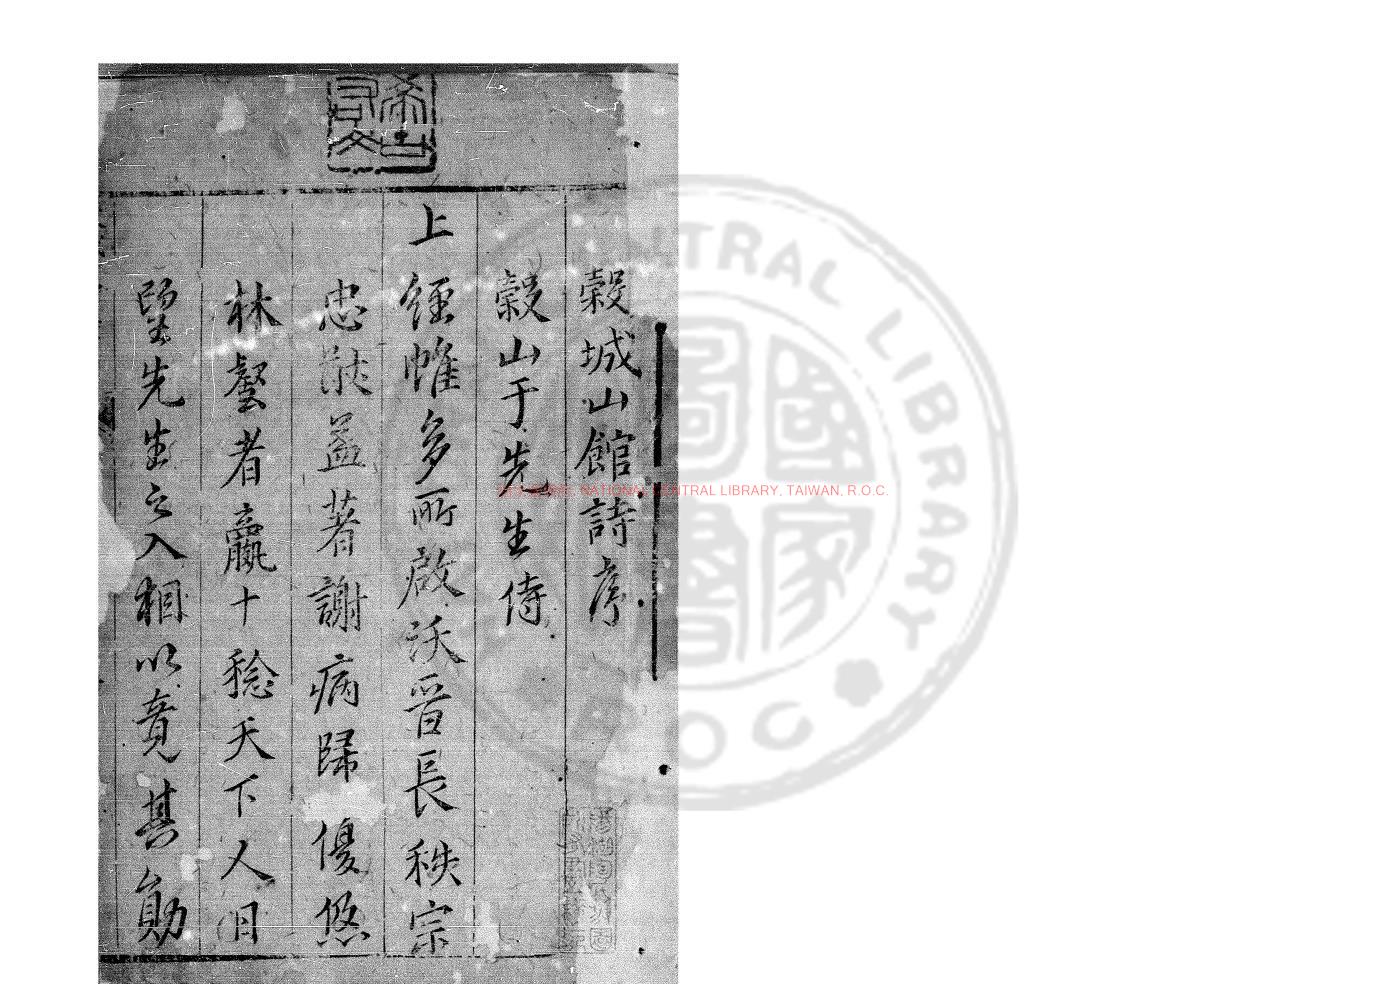 穀城山館詩序
穀山于先生侍
上經帷多所啟沃晉長秩宗
忠猷益著謝病歸優悠
林壑者贏十稔天下人日
望先生之入相以竟其勛
NATIONAL CENTRAL LIBRARY, TAIWAN, R.O.C.
CENTRAL LIBRARY
ROC